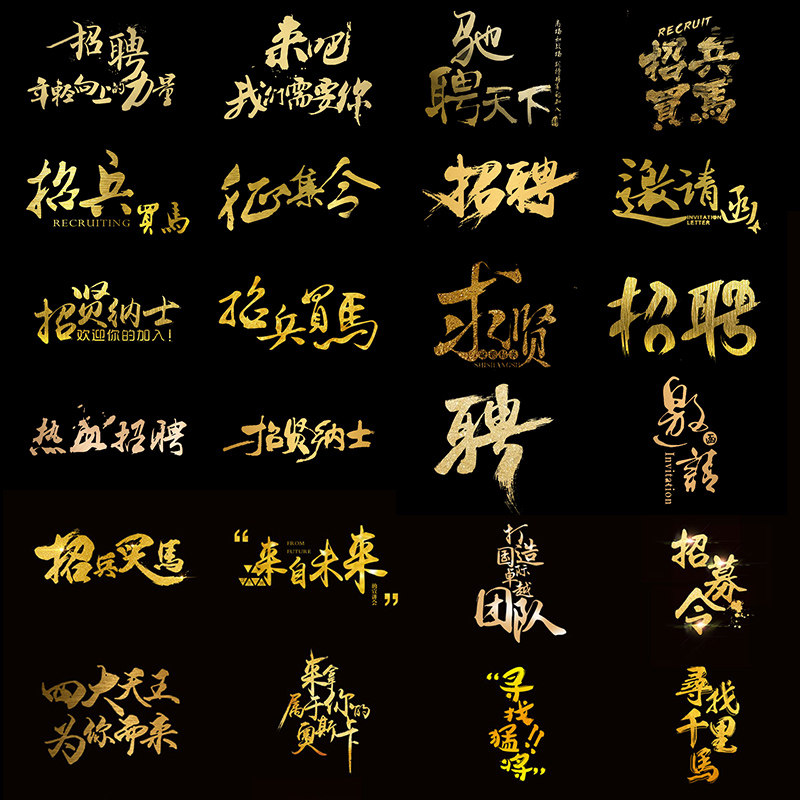 招聘
年轻向上的力量
来吧
我们需要你
驰
聘天下
RECRUIT
招兵
買馬
招兵
買馬
RECRUITING
征集令
招聘
邀请函
INVITATION
LETTER
招贤纳士
欢迎你的加入!
招兵買馬
求贤
SHISHANGSH
招聘
热血招聘
招贤纳士
聘
邀請
函
Invitation
招兵买馬
FROM
FUTURE
“来自未来”
的宣讲会
打造
国际
卓越
团队
招募令
四大天王
为你而来
来拿
属于你的
奥斯卡
“寻找
猛将!!”
尋找
千里
馬